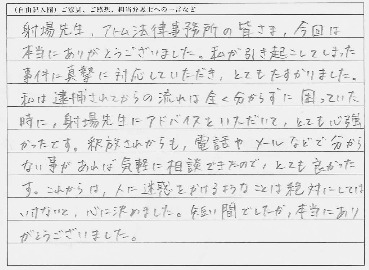 (自由記入欄)ご意見、ご感想、担当弁護士への一言など
射場先生、アトム法律事務所の皆さま、今回は
本当にありがとうございました。私が引き起こしてしまった
事件に真摯に対応していただき、とてもたすかりました。
私は逮捕されてからの流れは全く分からずに困っていた
時に、射場先生にアドバイスをいただいて、とても心強
かったです。釈放されからも、電話やメールなどで分から
ない事があれば気軽に相談できたので、とても良かった
す。これからは、人に迷惑をかけるようなことは絶対にしては
いけないと、心に決めました。短い間でしたが、本当にあり
がとうございました。